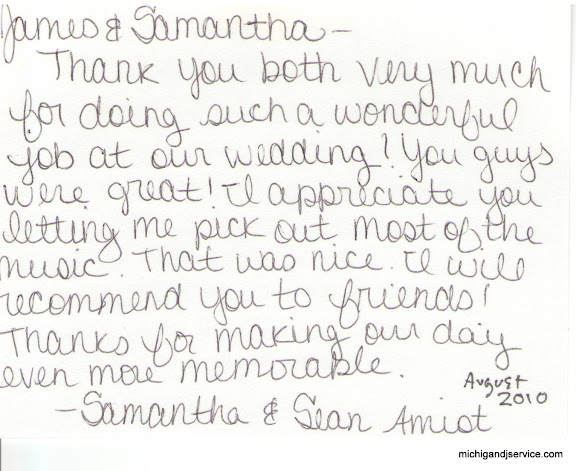 James & Samantha -
Thank you both very much
for doing such a wonderful
job at our wedding! You guys
were great! I appreciate you
letting me pick out most of the
music. That was nice. I will
recommend you to friends!
Thanks for making our day
even more memorable.
August
2010
- Samantha & Sean Amiot
michigandjservice.com